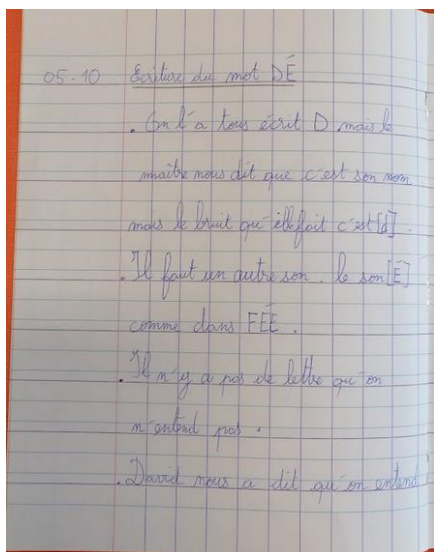 05-10 Ecriture du mot DÉ
. On l'a tous écrit D mais le
maître nous dit que c'est son nom
mais le bruit qu'elle fait c'est [d].
. Il faut un autre son. le son [É]
comme dans FÉE.
. Il n'y a pas de lettre qu'on
n'entend pas.
. David nous a dit qu'on entend